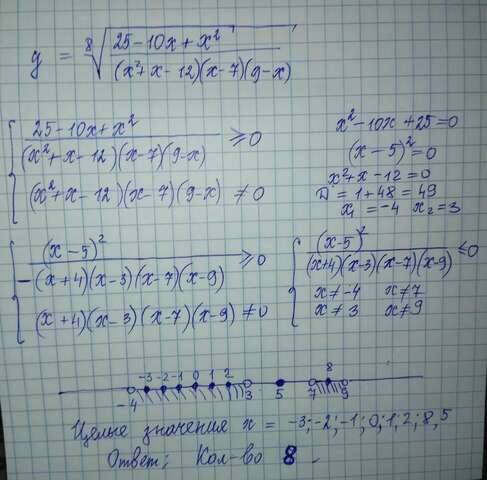 y = ⁸√((25-10x+x²)/((x²+x-12)(x-7)(9-x)))
{ (25-10x+x²)/((x²+x-12)(x-7)(9-x)) ⩾ 0
(x²+x-12)(x-7)(9-x) ≠ 0
x²-10x+25=0
(x-5)²=0
x²+x-12=0
D = 1+48 = 49
x₁ = -4 x₂ = 3
{ (x-5)²/(-(x+4)(x-3)(x-7)(x-9)) ⩾ 0
(x+4)(x-3)(x-7)(x-9) ≠ 0
{ (x-5)²/((x+4)(x-3)(x-7)(x-9)) ⩽ 0
x ≠ -4 x ≠ 7
x ≠ 3 x ≠ 9
-4 -3 -2 -1 0 1 2 3 5 7 8 9
Целые значения x = -3; -2; -1; 0; 1; 2; 8, 5
Ответ: Кол-во 8.